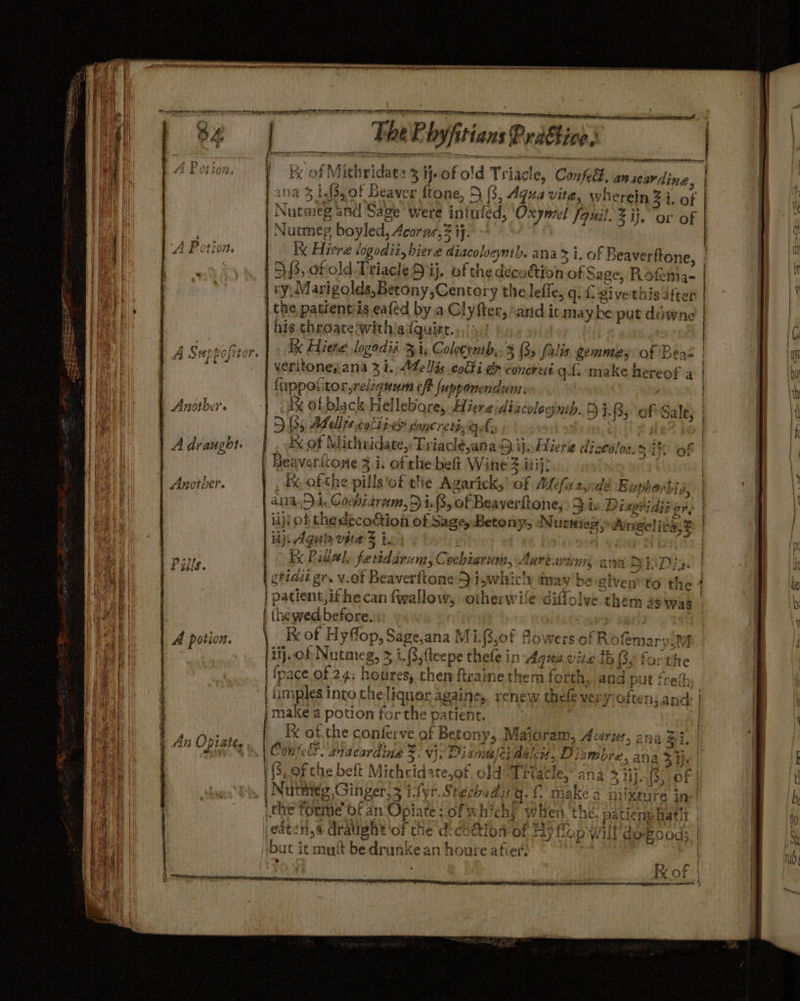 84 The Phyſitians Practice.
A Potion.
℞ of Mithridate ʒ ij. of old Triacle, Confect. anacardine,
ana ʒ i.ſs, of Beaver ſtone, ℈ ſs, Aqua vitæ, wherein ℥ i. of
Nutmeg and Sage were infuſed, Oxymel ſquil. ℥ ij. or of
Nutmeg boyled, Acorus, ℥ ij.
A Potion.
℞ Hieræ logodii, hieræ diacolocynth. ana ʒ i. of Beaverſtone,
℈ ſs, of old Triacle ℈ ij. of the decoction of Sage, Roſema-
ry, Marigolds, Betony, Centory the leſſe, q. ſ. give this after
the patient is eaſed by a Clyſter, and it may be put downe
his throate with a ſquirt.
A Suppoſitor.
℞ Hieræ logodii ʒ i, Colocynth, ʒ ſs, ſalis gemmæ, of Bea-
veritone, ana ʒ i. Mellis cocti & concreti q.ſ. make hereof a
ſuppoſitor, reliquum eſt ſupponendum.
Another.
℞ of black Hellebore, Hieræ diacolocynth. ℈ i.ſs, of Sale,
℈ ſs, Mellis cocti & concreti, q.ſ.
A draught.
℞ of Mithridate, Triacle, ana ℈ ij. Hieræ diacoloc. ʒ iſs of
Beaverſtone ʒ i. of the beſt Wine ℥ iiij.
Another.
℞ of the pills of the Agarick, of Meſua, de Euphorbio,
ana ℈ i. Cochiarum, ℈ i.ſs, of Beaverſtone, ℈ i. Diagridii gr.
iij. of the decoction of Sage, Betony, Nutmeg, Angelica, ℥
iij. Aquæ vitæ ℥ i.
Pills.
℞ Pillul. fetidarum, Cochiarum, Aurearum, ana ℈ i. Dia-
gridii gr. v. of Beaverſtone ℈ i, which may be given to the
patient, if he can ſwallow, otherwiſe diſſolve them as was
ſhewed before.
A potion.
℞ of Hyſſop, Sage, ana M i.ſs, of flowers of Roſemary, M
iij. of Nutmeg, ʒ i.ſs, ſteepe theſe in Aqua vitæ ℔ ſs, for the
ſpace of 24. houres, then ſtraine them forth, and put freſh
ſimples into the liquor againe, renew theſe very often, and
make a potion for the patient.
An Opiate.
℞ of the conſerve of Betony, Majoram, Acorus, ana ℥ i.
Confect. anacardinæ ℥. vj. Dianuſci dulcis, Diambre, ana ʒ ij.
ſs, of the beſt Mithridate, of old Triacle, ana ʒ iij. ſs, of
Nutmeg, Ginger, ʒ i. ſyr. Stechados q. ſ. make a mixture in
the forme of an Opiate: of which, when the patient hath
eaten, a draught of the decoction of Hyſſop will do good,
but it muſt be drunke an houre after.
℞ of